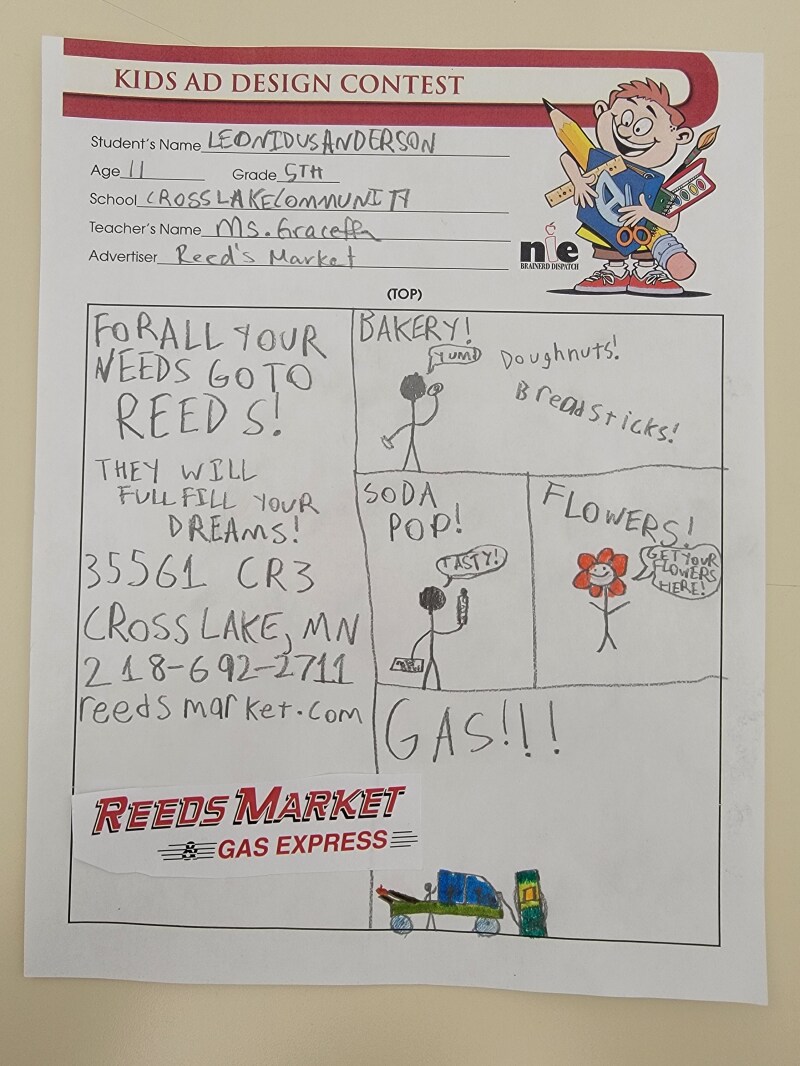 KIDS AD DESIGN CONTEST
Student's Name LEONIDUS ANDERSON
Age 11 Grade 5TH
School CROSSLAKE COMMUNITY
Teacher's Name MS. Graceffa
Advertiser Reed's Market
nie
BRAINERD DISPATCH
(TOP)
FOR ALL YOUR
NEEDS GO TO
REEDS!
THEY WILL
FULLFILL YOUR
DREAMS!
35561 CR3
CROSSLAKE, MN
218-692-2711
reedsmarket.com
REEDS MARKET
GAS EXPRESS
BAKERY!
YUM!
Doughnuts!
Breadsticks!
SODA
POP!
TASTY!
FLOWERS!
GET YOUR
FLOWERS
HERE!
GAS!!!